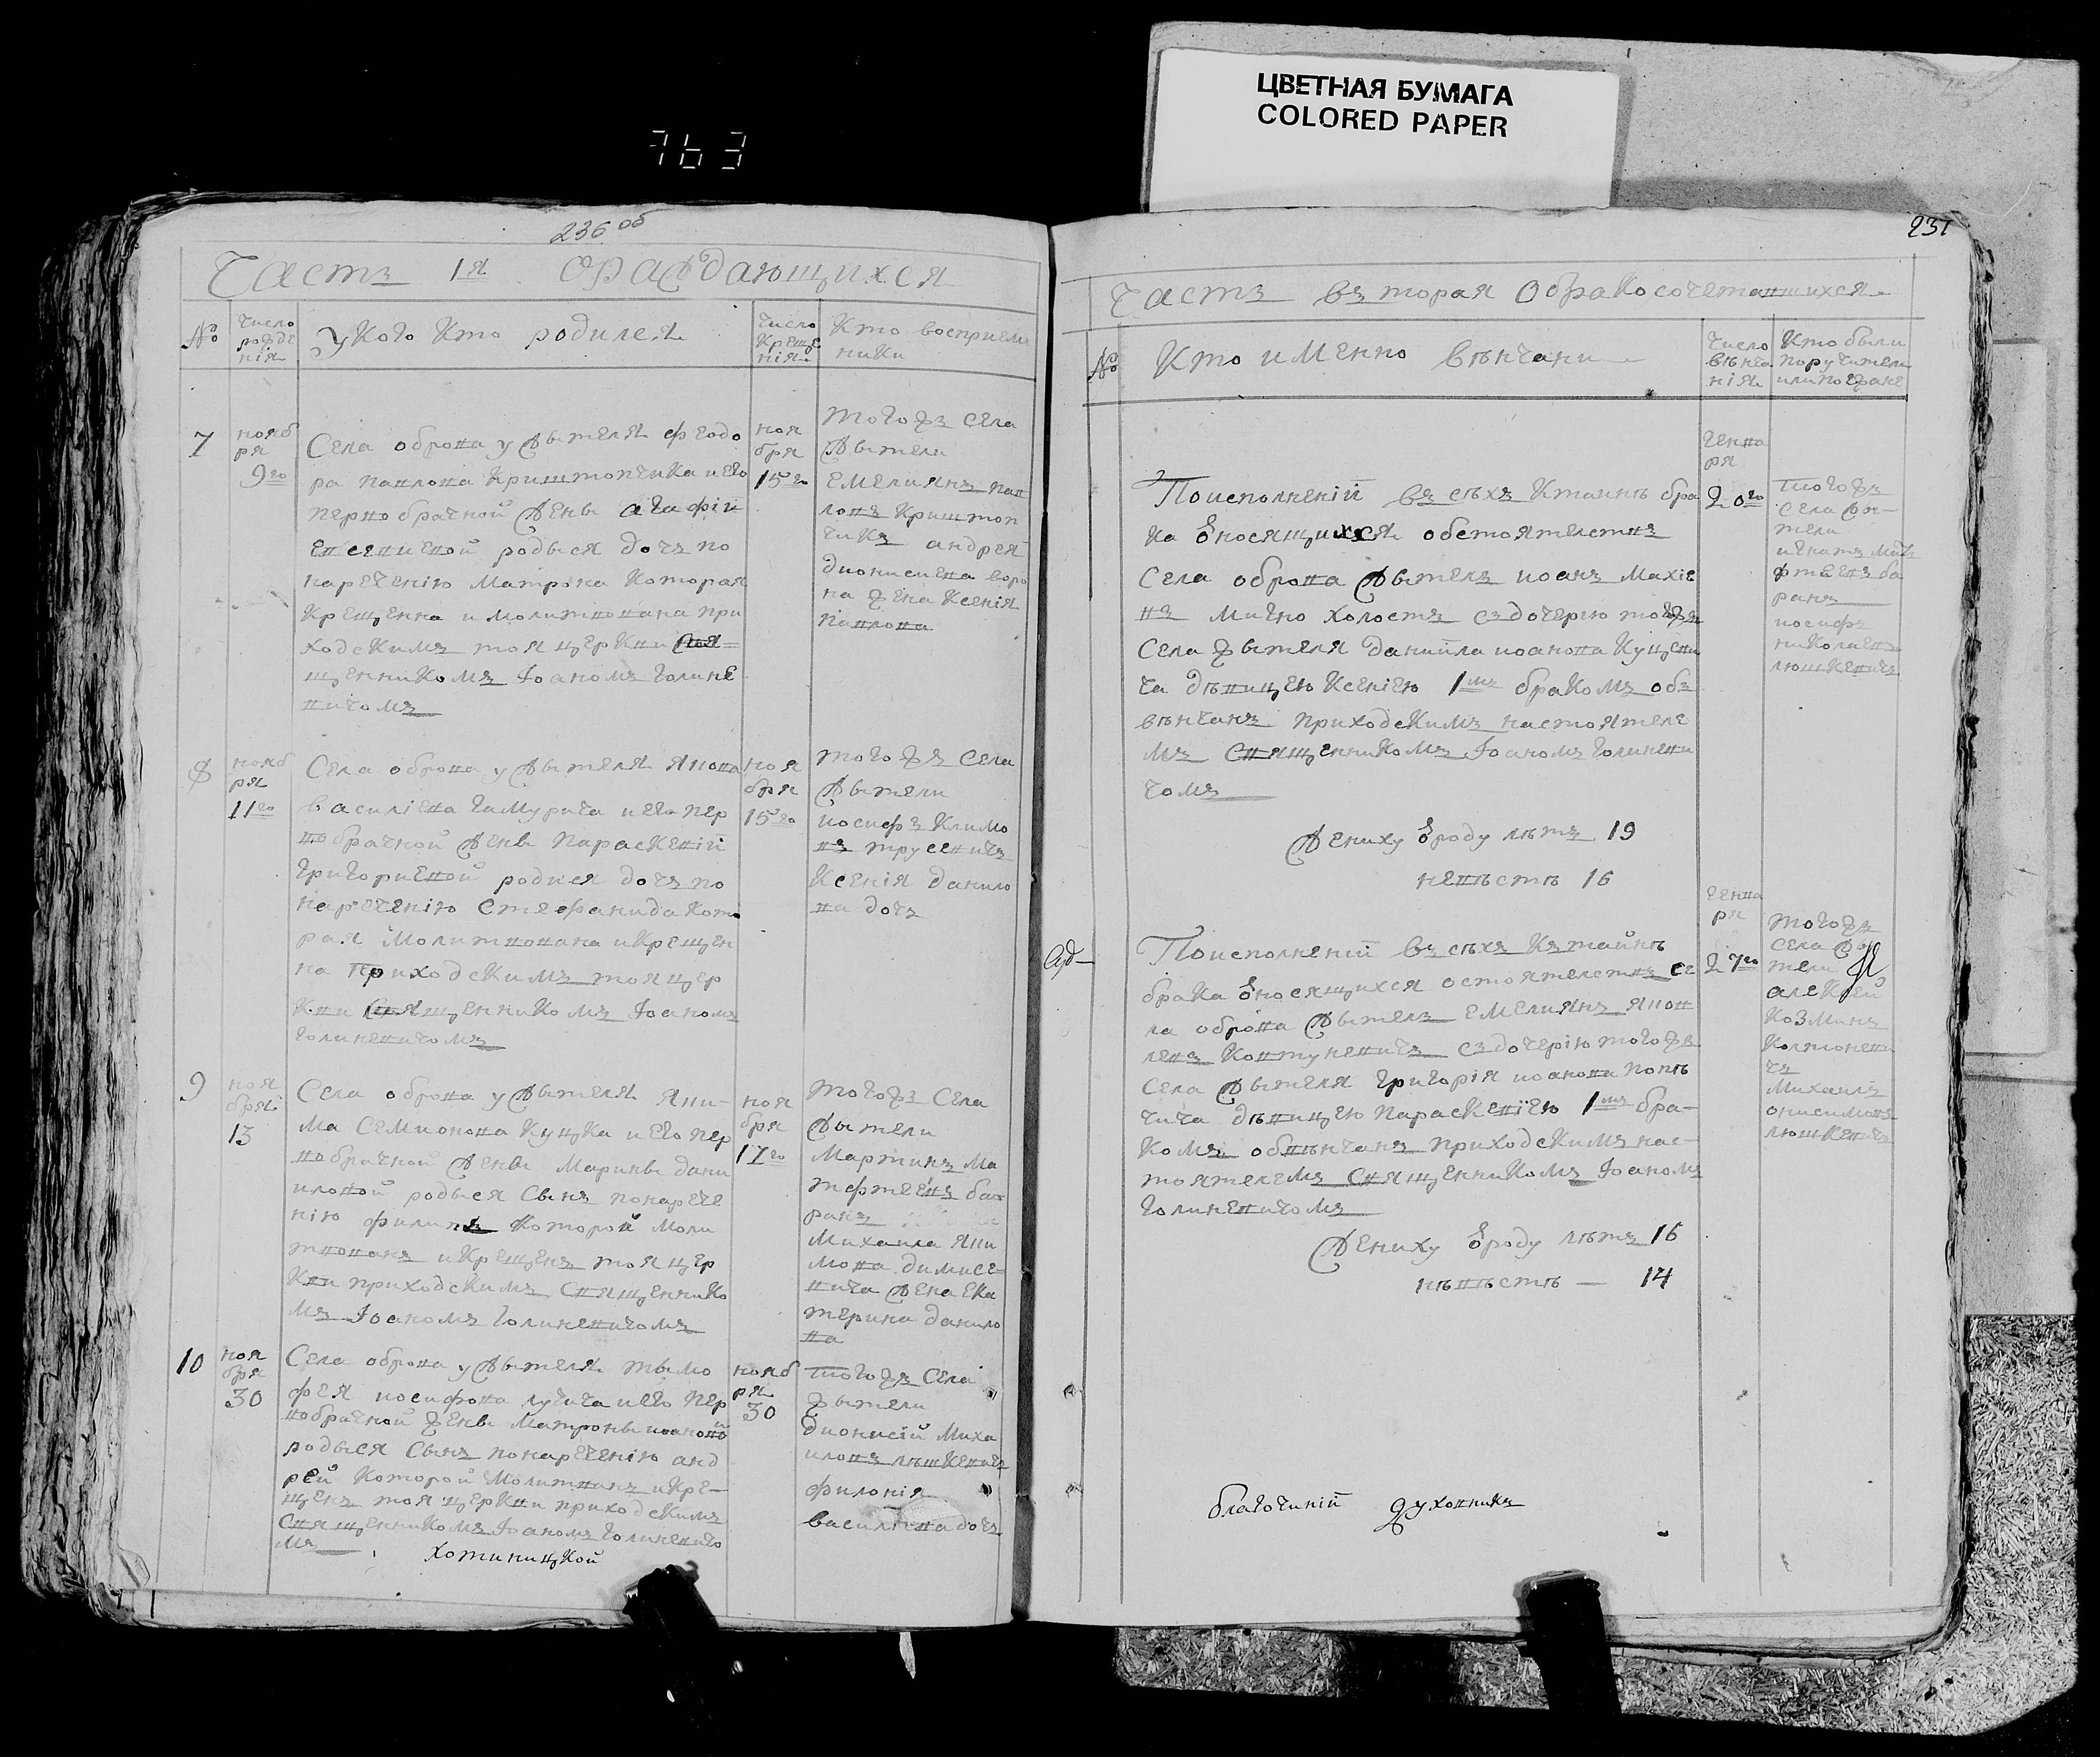 ЦВЕТНАЯ БУМАГА
COLORED PAPER
763
236 об
Часть 1я о раждающихся
№
число рожде нія
У кого кто родился
число креще нія
кто восприем ники
7
нояб ря 9го
Села оброва у жытеля феодо
ра павлова Криштопчика и его
перво брачной жены агафій
евсевиевой родыся дочь по
наречению Матрона которая
Крещенна и молитвована при
ходскимъ тоя церкви свя=
щенникомъ Іоаномъ Голине
вичомъ
ноя бря 15го
тогожъ села
жытели
Емелиянъ пав
ловъ Криштоп
чикъ андрея
дионисиева воро
на жена Ксенія
павлова
8
нояб ря 11го
Села оброва у жытеля
василіева Гамурича и его пер
вобрачной жены Параскевій
Григориевой родися дочь по
наречению Стефанида кото
рая молитвована и крещен
на приходскимъ тоя цер
кви священникомъ Іоаномъ
Голиневичомъ
ноя бря 15го
тогожъ села
жытели
иосифъ Климо
въ трусевичъ
Ксенія данило
ва дочь
9
ноя бря 13
Села оброва у жытеля яки-
ма Семионова Куцка и его пер
вобрачной жены Марины дани
иловой родыся Сынъ по нарече
нію филипъ которой моли
твованъ и крещенъ тоя цер
кви приходскимъ священнико
мъ Іоаномъ Голиневичомъ
ноя бря 17го
тогожъ села
жытели
Мартинъ Ма
тфтеевъ ба
ранъ
Михаила яки
мова димисе
вича жена ека
терина данило
ва
10
ноя бря 30
Села оброва у жытеля тымо
фея иосифова лучича и его пер
вобрачной жены Матроны иоановой
родыся Сынъ по наречению анд
рей которой молитвинъ и кре-
щенъ тоя церкви приходскимъ
священникомъ Іоаномъ Голиневичо
мъ
нояб ря 30
тогожъ села
жытели
дионисій миха
иловъ люшкевичъ
филонія
василиева дочь
хотиницкой
237
Часть вторая о бракосочетавшихся
№
Кто именно венчани
число венча нія
Кто были поручители или поезжане
генва ря 20го
По исполненій всехъ к таинъ бра
ка относящихся обстоятелствъ
Села оброва жытель иоанъ махіе
въ мигно холостъ съ дочерию тогожъ
Села жытеля даниила иоанова Куцеви
ча девицею Ксениею 1мъ бракомъ об
венчанъ приходскимъ настоятеле
мъ священникомъ Іоаномъ Голиневи
чомъ
жениху отроду летъ 19
невесте 16
тогожъ
села жы-
тели
игнатъ мат
фтеевъ ба
ранъ
иосифъ
николаевъ
люшкевичъ
генва ря 27го
По исполненій всехъ къ тайне
брака относящихся остоятелствъ се
ла оброва жытель Емелиянъ
Ковтуневичъ съ дочерію тогожъ
села жытеля Григорія иоанова попе
чича девицею Параскевіею 1мъ бра-
комъ обвенчанъ приходскимъ нас-
тоятелемъ священникомъ Іоаномъ
Голиневичомъ
жениху отроду летъ 16
невесте — 14
тогожъ
села жы
тели
алексей
Козминъ
Михаилъ
онисимовъ
люшкевичъ
благочиній духовникъ